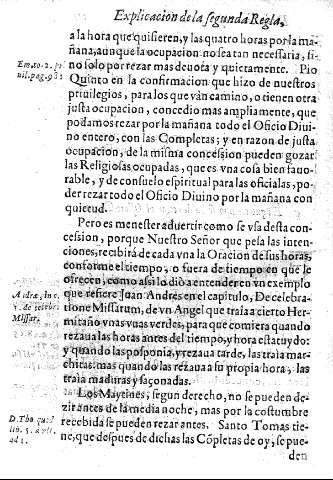 Explicacion de la segunda Regla,
a la hora que quisieren, y las quatro horas por la ma-
ñana, aunque la ocupacion no sea tan necessaria, si-
no solo por rezar mas deuota y quietamente. Pio
Quinto en la confirmacion que hizo de nuestros
priuilegios, para los que van camino, o tienen otra
justa ocupacion, concedio mas ampliamente, que
podamos rezar por la mañana todo el Oficio Diui-
no entero, con las Completas; y en razon de justa
ocupacion, de la misma concession pueden gozar
las Religiosas ocupadas, que es vna cosa bien fauo-
rable, y de consuelo espiritual para las oficialas, po-
der rezar todo el Oficio Diuino por la mañana con
quietud.
Pero es menester aduertir como se vsa desta con-
cession, porque Nuestro Señor que pesa las inten-
ciones, recibirà de cada vna la Oracion de sus horas,
conforme el tiempo, o fuera de tiempo en que le
ofrecen, como assi lo diò a entender en vn exemplo
que refiere Juan Andres en el capitulo, De celebra-
tione Missarum, de vn Angel que traia a cierto Her-
mitaño vnas vuas verdes, para que comiera quando
rezaua las horas antes del tiempo, y hora estatuydo:
y quando las posponia, y rezaua tarde, las traia mar-
chitas: mas quando las rezaua a su propia hora, las
traia maduras y saçonadas.
Los Maytines, segun derecho, no se pueden de-
zir antes de la media noche, mas por la costumbre
recebida se pueden rezar antes. Santo Tomas tie-
ne, que despues de dichas las Cõpletas de oy, se pue-
den
Em. to. 2. pri
uil. pag. 98:
Missar.
D. Tho. quod
lib. 5. art.
ad 1.